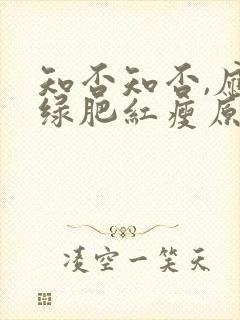 知否知否,应
绿肥红瘦原
凌空一笑天